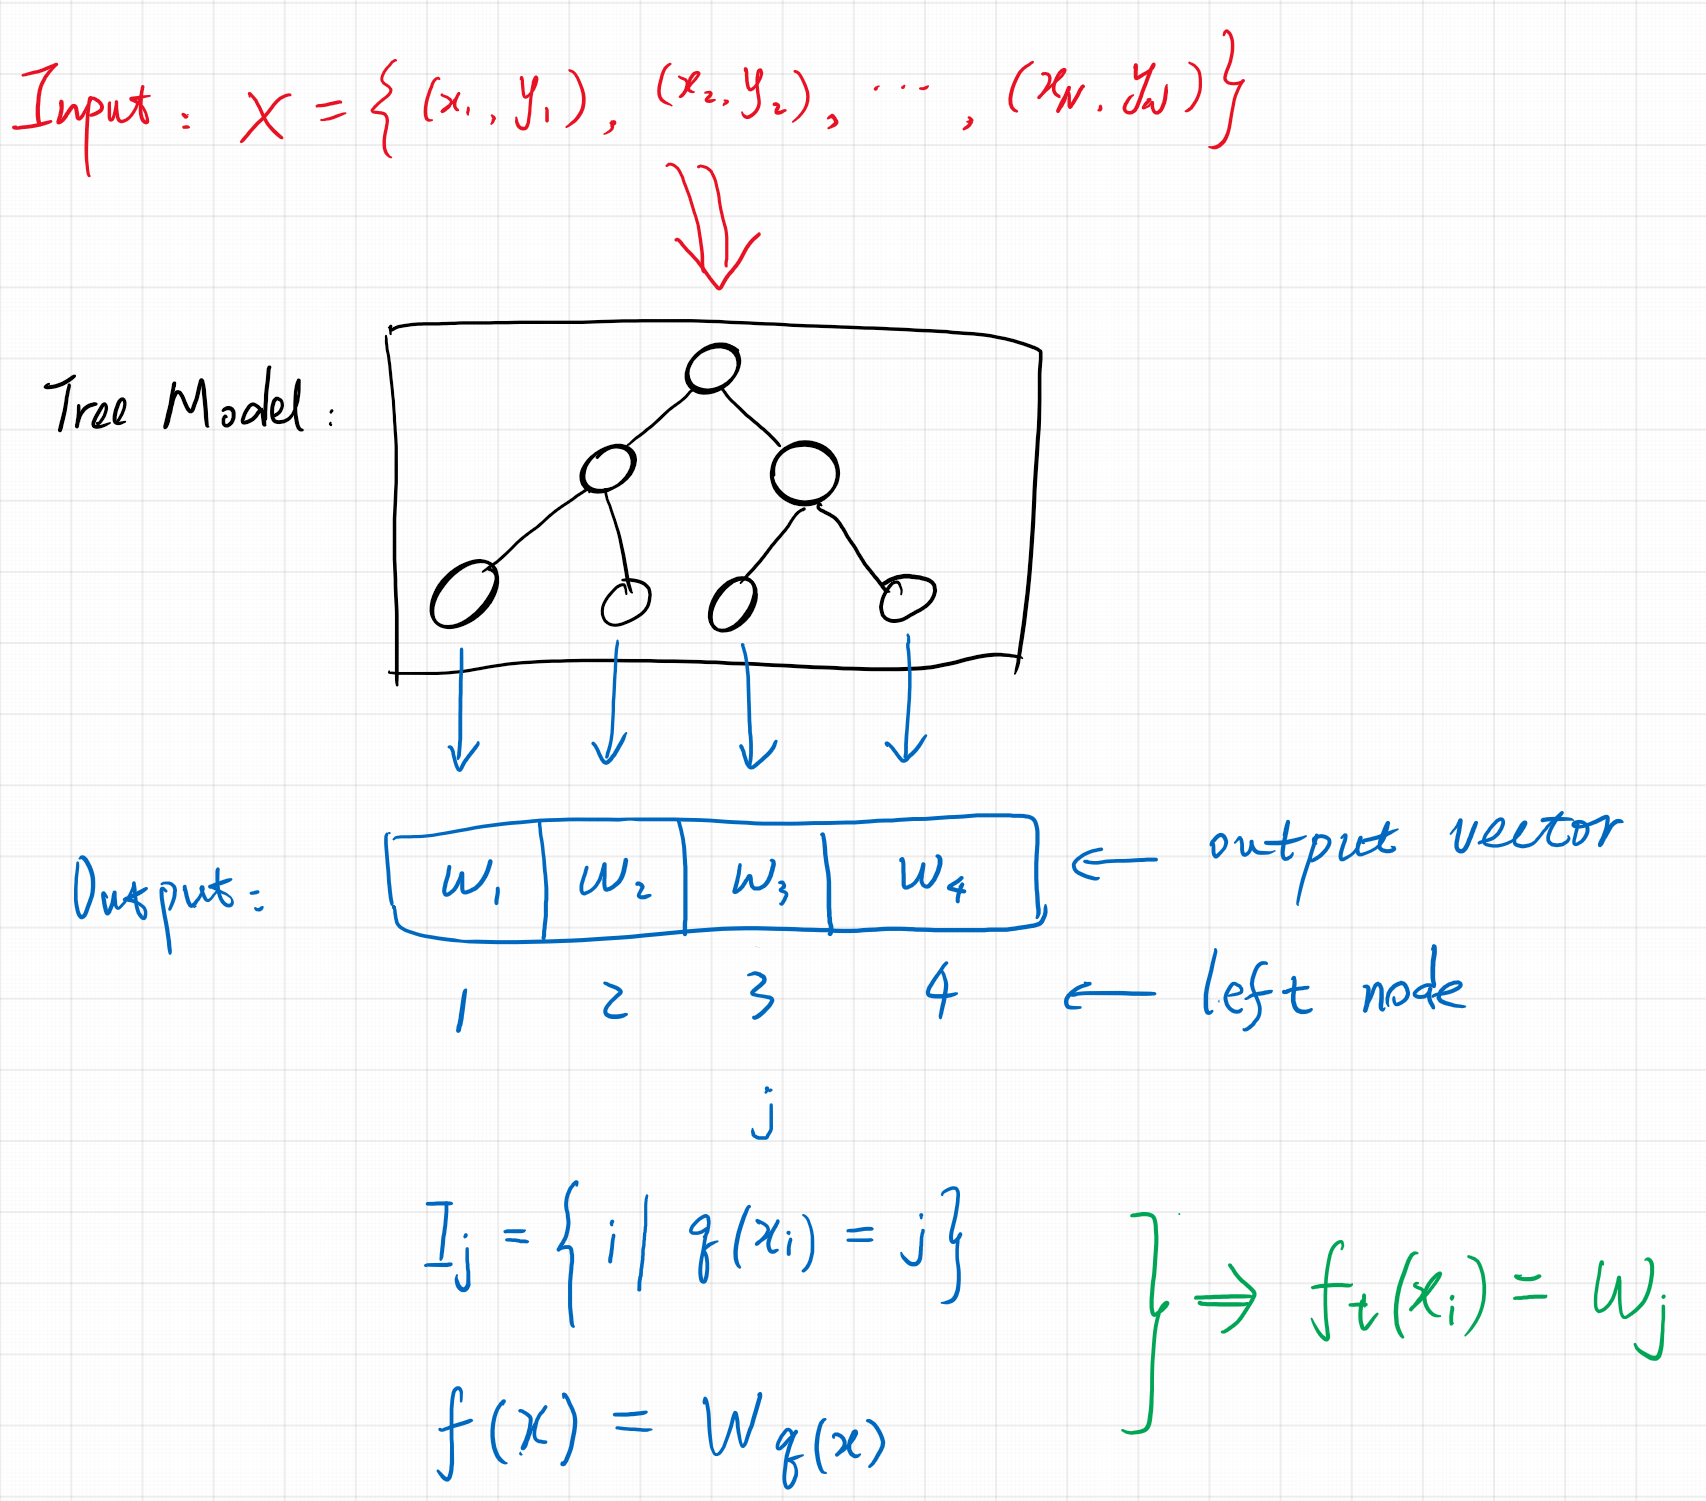 Input: X = {(x₁, y₁), (x₂, y₂), ⋯, (x_N, y_N)}
Tree Model:
Output: w₁ w₂ w₃ w₄ ← output vector
1 2 3 4 ← left node
j
I_j = { i | q(x_i) = j }
} ⇒ f_t(x_i) = w_j
f(x) = w_q(x)